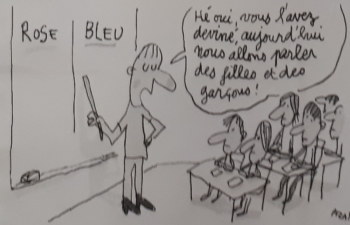 ROSE
BLEU
Hé oui, vous l'avez
deviné, aujourd'hui
nous allons parler
des filles et des
garçons!